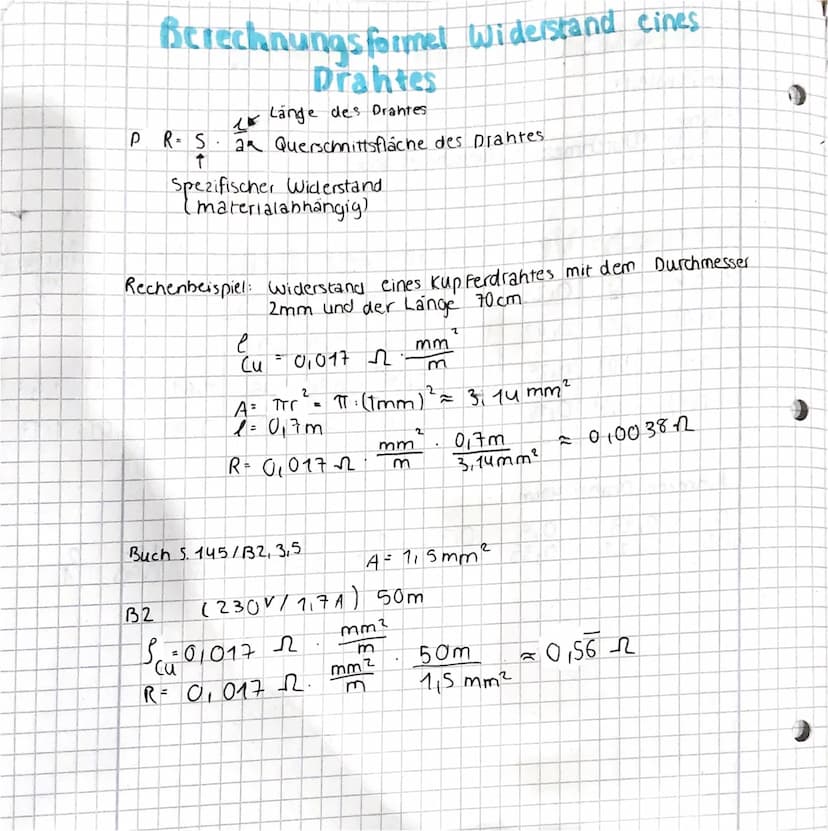 Berechnungsformel Widerstand eines
Drahtes
Länge des Drahtes
ρ R = S · l/a Querschnittsfläche des Drahtes
↑
Spezifischer Widerstand
(materialabhängig)
Rechenbeispiel: Widerstand eines Kupferdrahtes mit dem Durchmesser
2mm und der Länge 70cm
ℓ Cu = 0,017 Ω · mm²/m
A = πr² = π · (1mm)² ≈ 3,14 mm²
l = 0,7m
R = 0,017 Ω · mm²/m · 0,7m/3,14mm² ≈ 0,0038 Ω
Buch S. 145/B2, 3,5 A = 1,5mm²
B2 (230V/1,7A) 50m
ρ Cu = 0,017 Ω · mm²/m
R = 0,017 Ω · mm²/m · 50m/1,5 mm² ≈ 0,56̅ Ω